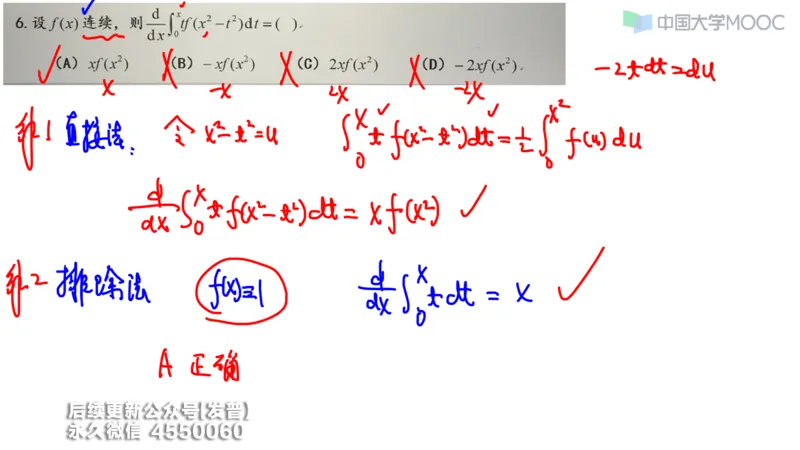 中国大学MOOC
6. 设 f(x) 连续，则 d/dx ∫₀ˣ tf(x²−t²)dt = ( ).
(A) xf(x²) (B) −xf(x²) (C) 2xf(x²) (D) −2xf(x²).
x −x 2x −2x
−2tdt=du
解1 直接法: 令 x²−t²=u ∫₀ˣ t f(x²−t²)dt = 1/2 ∫₀^(x²) f(u) du
d/dx ∫₀ˣ t f(x²−t²)dt = x f(x²) ✓
解2 排除法 f(x)≡1 d/dx ∫₀ˣ t dt = x ✓
A 正确
后续更新公众号(发普)
永久微信 4550060